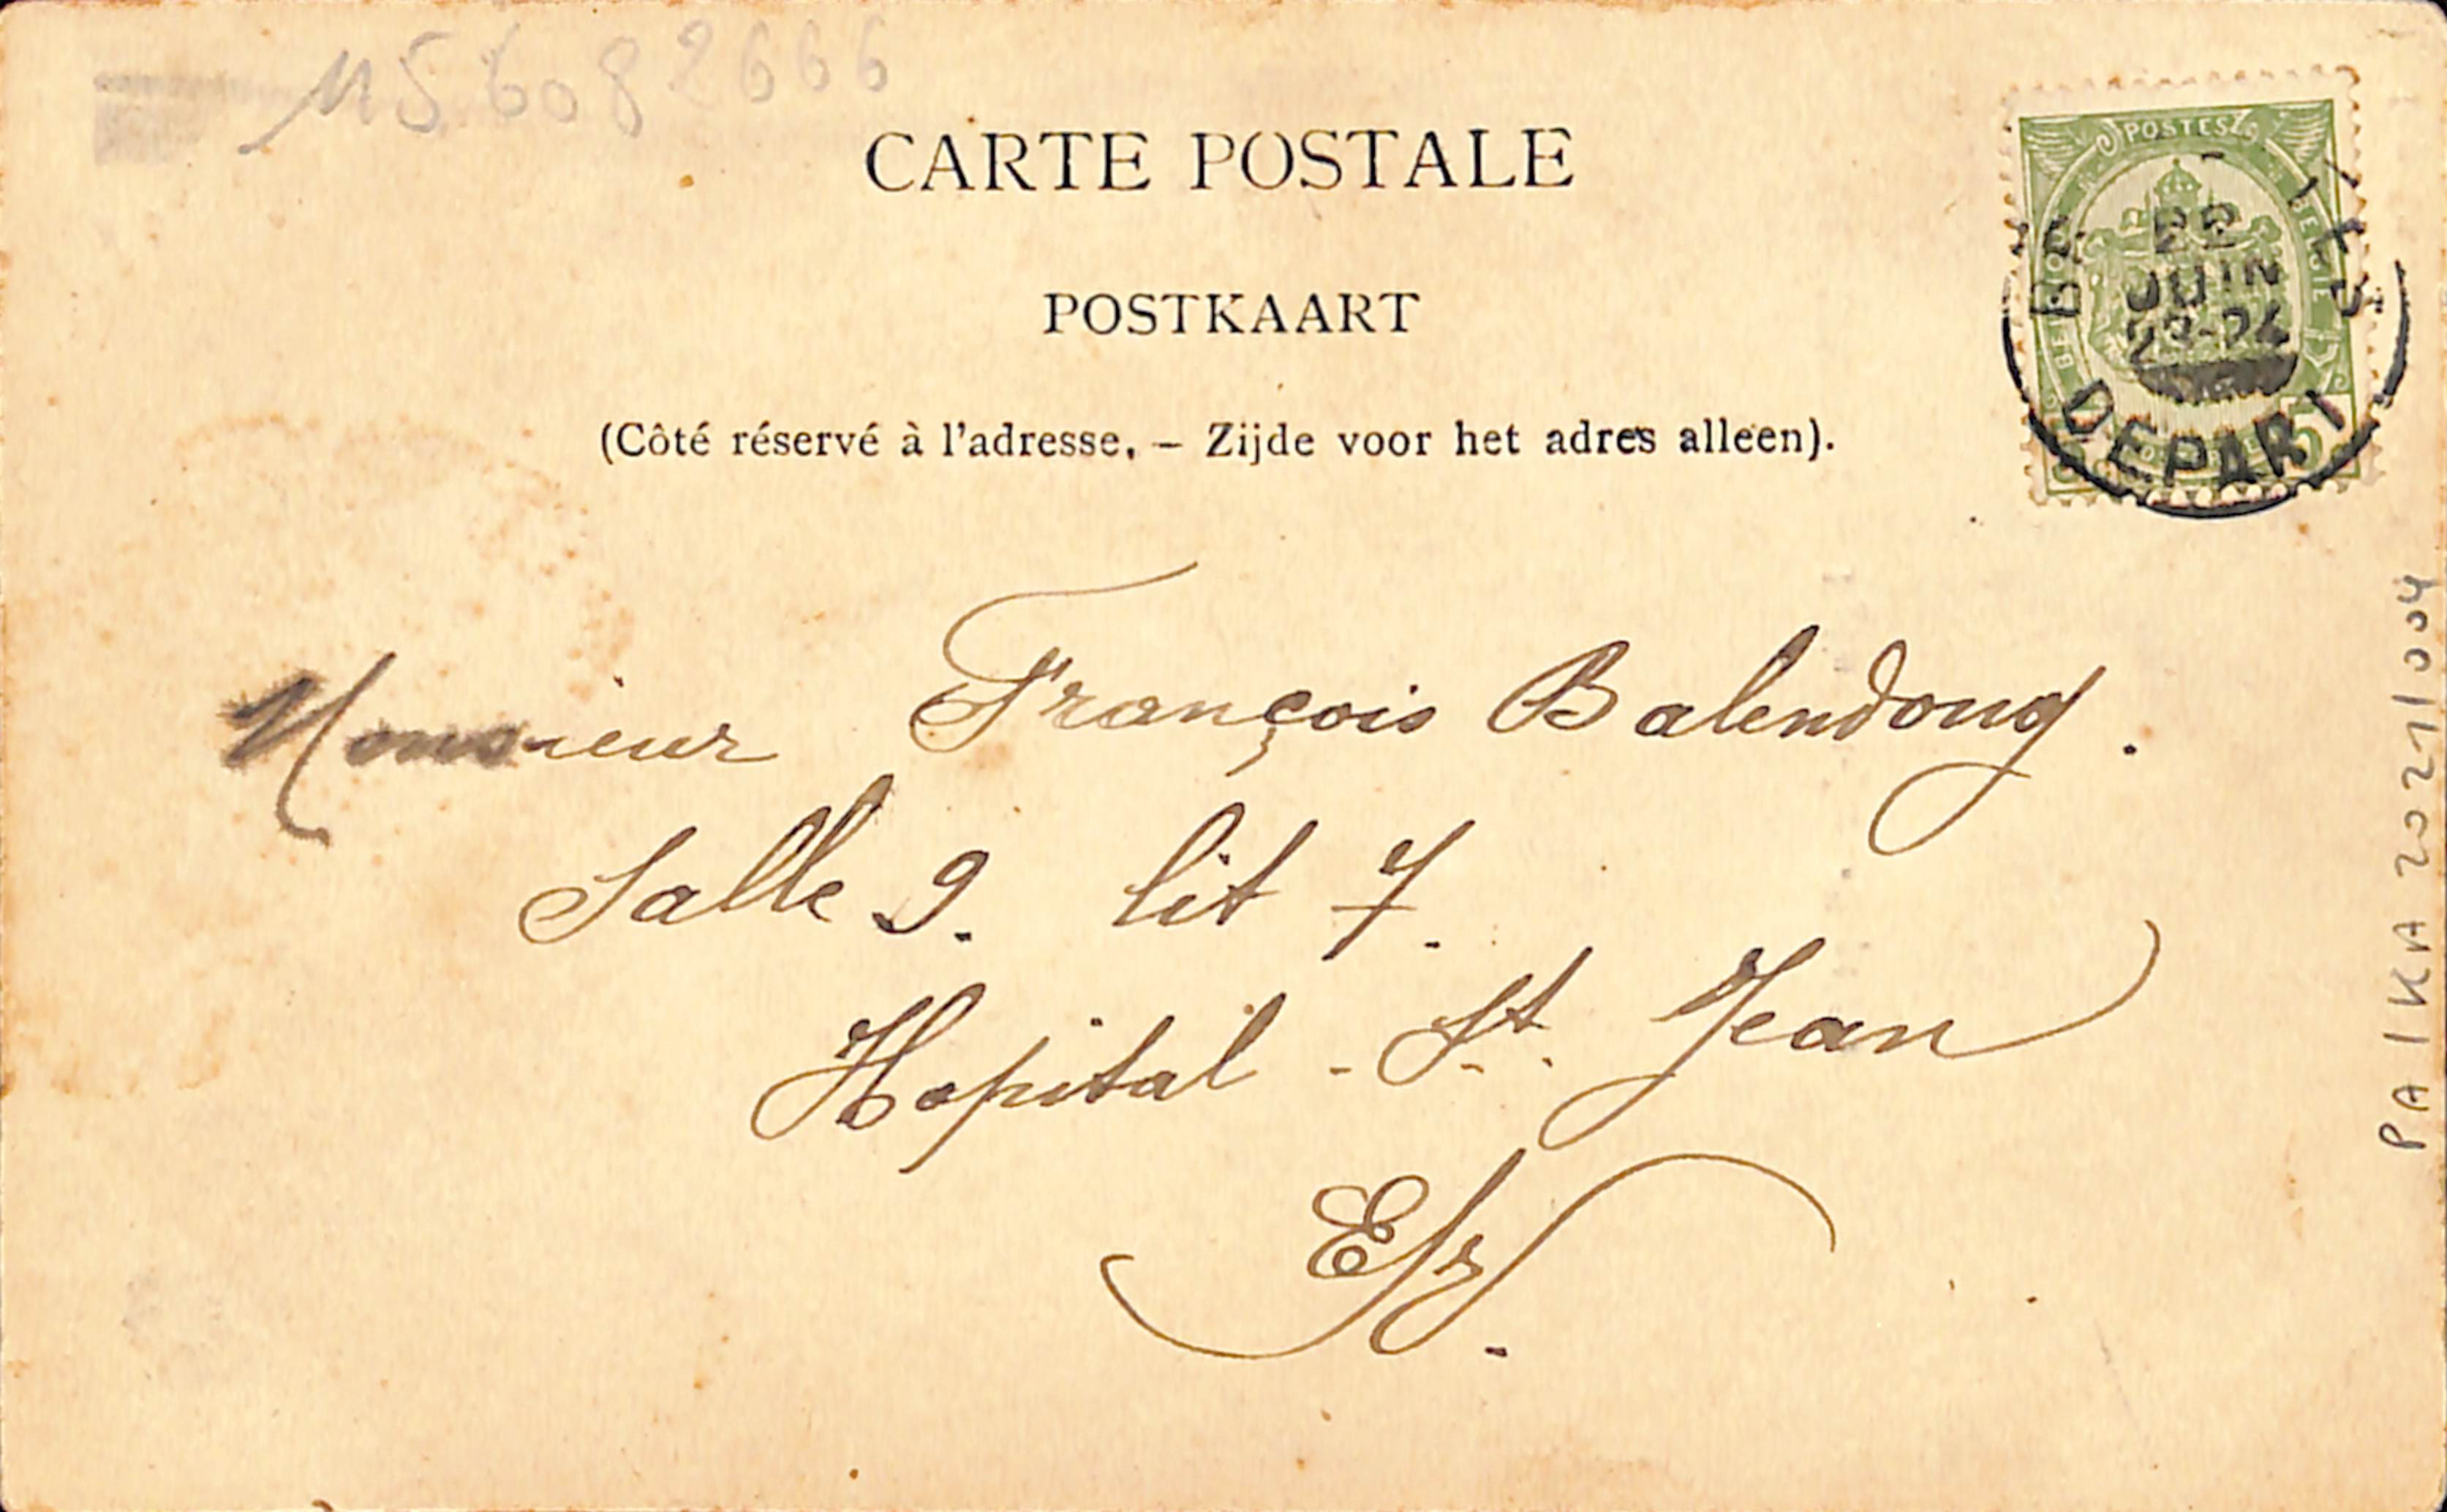 115 6082666
CARTE POSTALE
POSTKAART
(Côté réservé à l'adresse. – Zijde voor het adres alleen).
POSTES
22
JUIN
DEPART
5
Monsieur François Balendong.
Salle 9. lit 7.
Hopital - St. Jean
PA IKA 2021/004